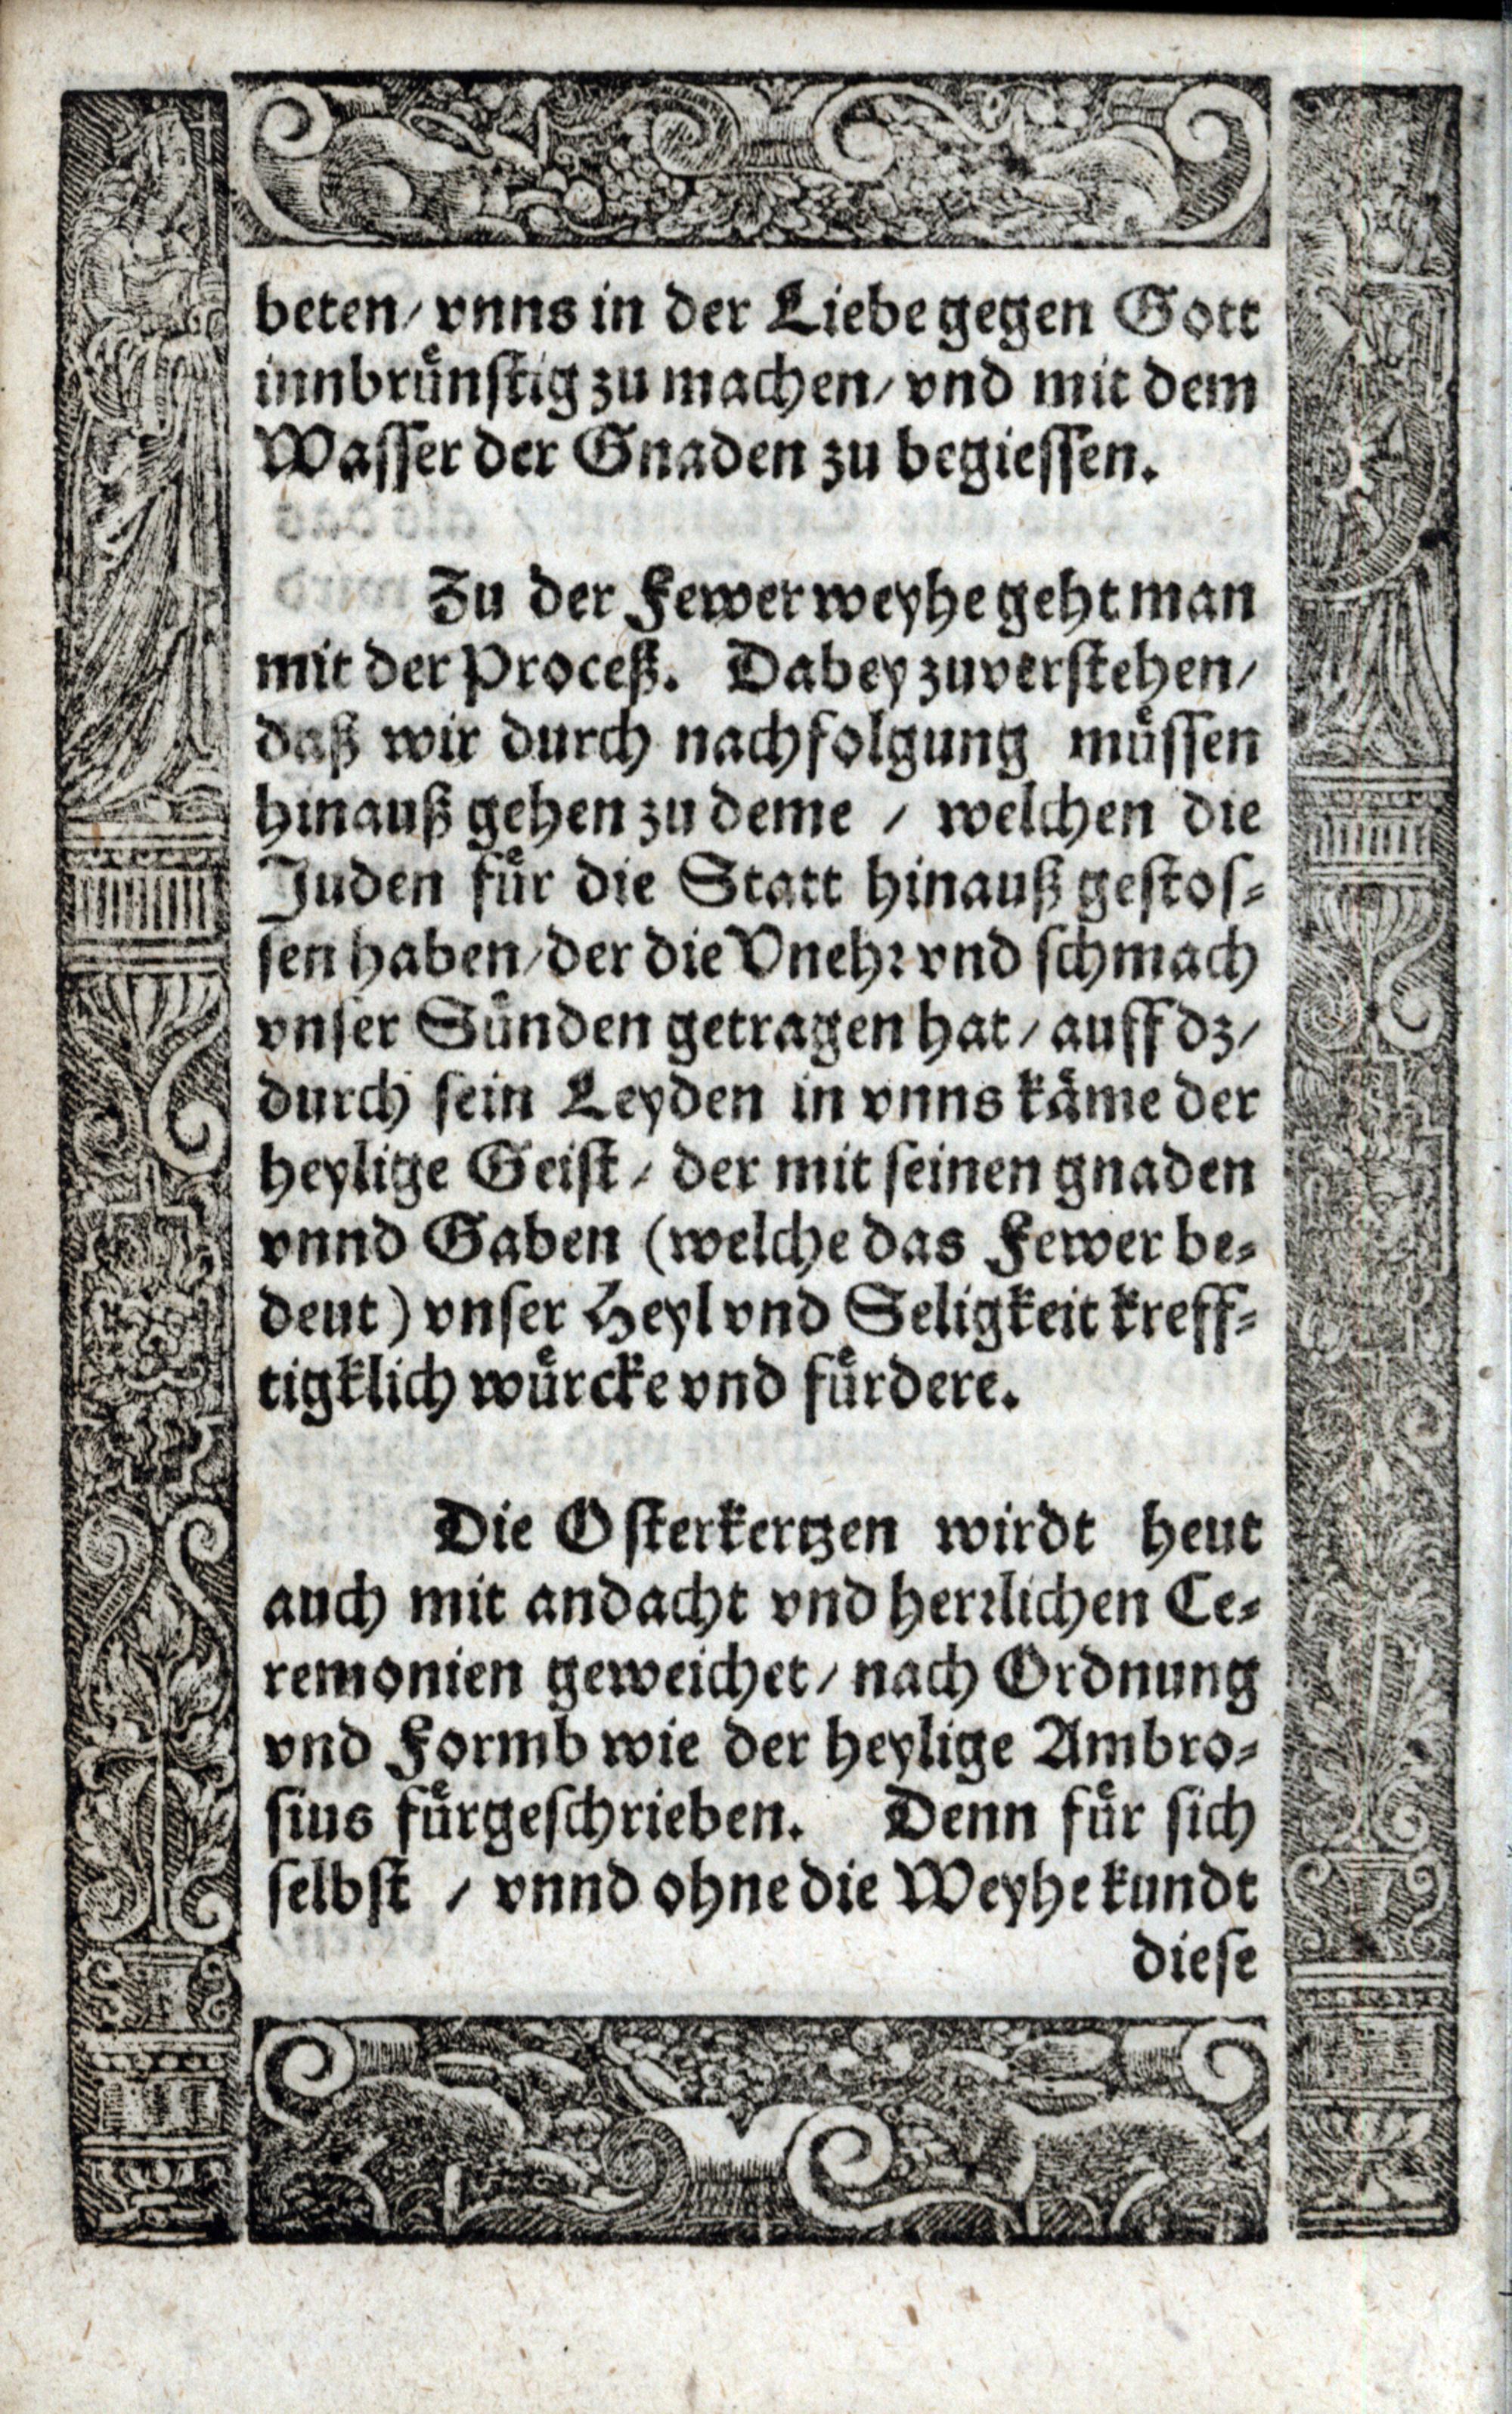 beten / vnns in der Liebe gegen Gott
innbrünstig zu machen / vnd mit dem
Wasser der Gnaden zu begiessen.
Zu der Fewerweyhe geht man
mit der Proceß. Dabey zuverstehen /
daß wir durch nachfolgung müssen
hinauß gehen zu deme / welchen die
Juden für die Statt hinauß gestos-
sen haben / der die Vnehr vnd schmach
vnser Sünden getragen hat / auff dz /
durch sein Leyden in vnns käme der
heylige Geist / der mit seinen gnaden
vnnd Gaben (welche das Fewer be-
deut) vnser Heyl vnd Seligkeit kreff-
tigklich würcke vnd fürdere.
Die Osterkertzen wirdt heut
auch mit andacht vnd herrlichen Ce-
remonien geweichet / nach Ordnung
vnd Formb wie der heylige Ambro-
sius fürgeschrieben. Denn für sich
selbst / vnnd ohne die Weyhe kundt
diese